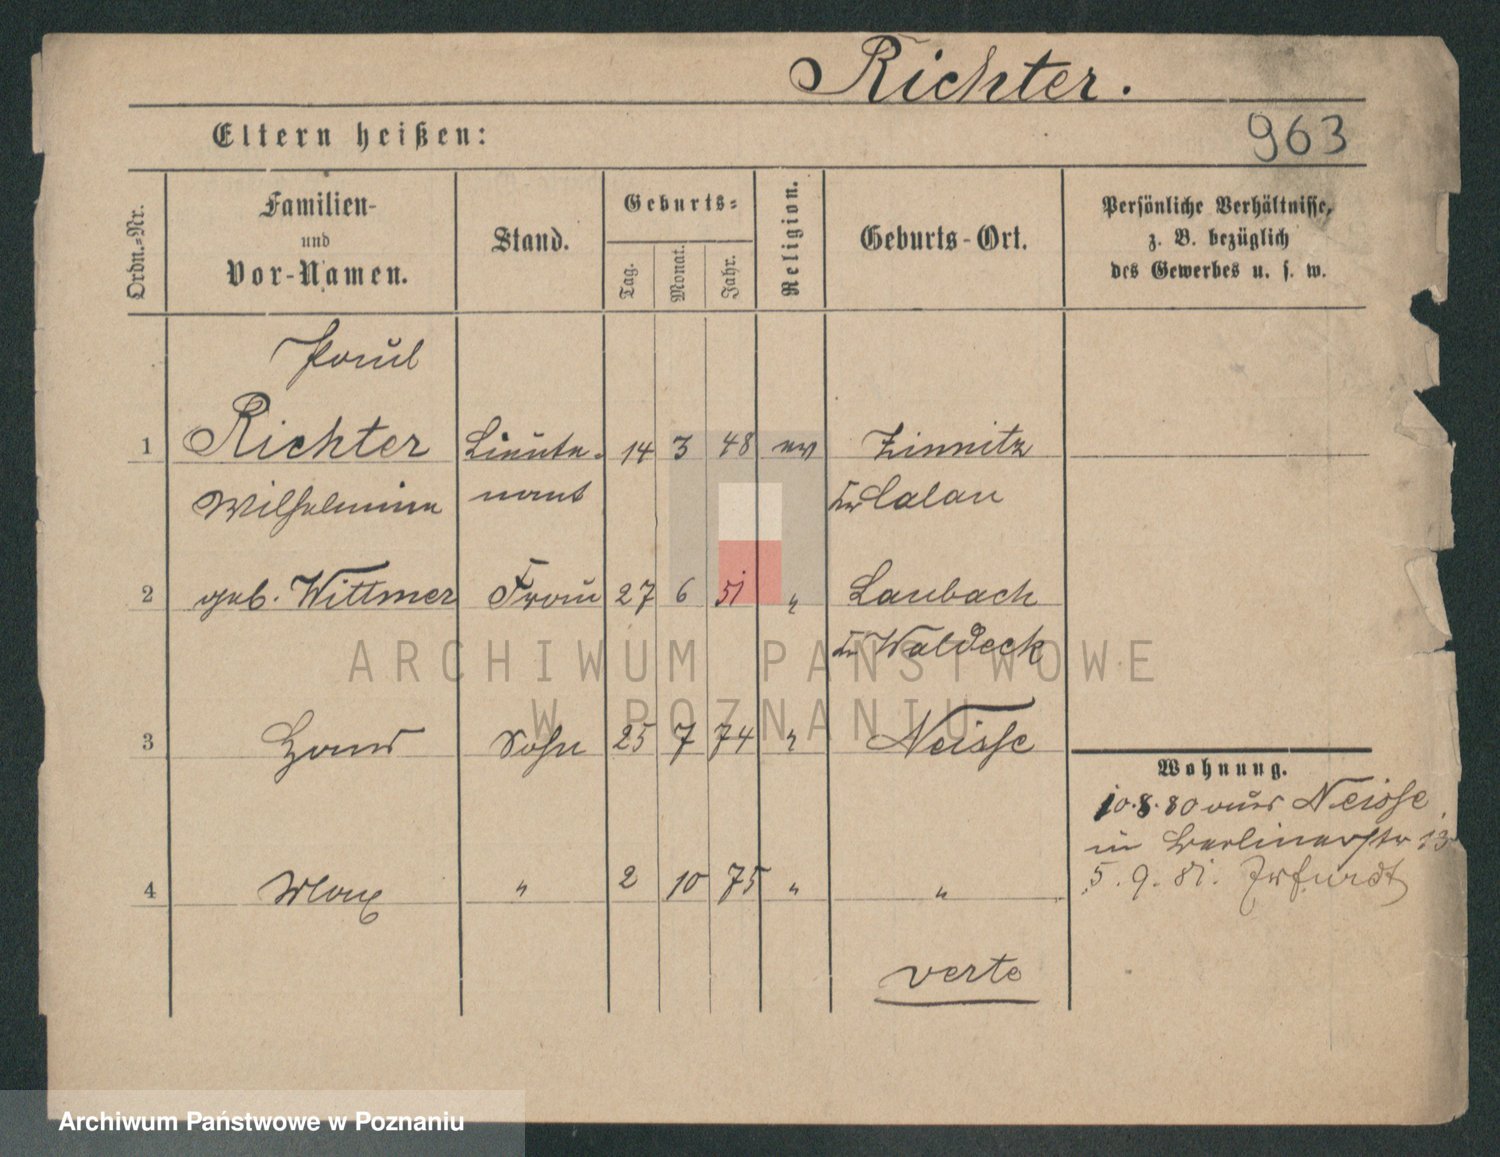 Richter.
963
Eltern heißen:
Ordn.=Nr.
Familien-
und
Vor-Namen.
Stand.
Geburts=
Tag.
Monat.
Jahr.
Religion.
Geburts-Ort.
Persönliche Verhältnisse,
z. B. bezüglich
des Gewerbes u. s. w.
Paul
1 Richter Lieute- 14 3 48 ev Zinnitz
Wilhelmine nant Kr Calau
2 geb. Wittmer Frau 27 6 51 " Laubach
Kr Waldeck
3 Hans Sohn 25 7 74 " Neisse
Wohnung.
10.8.80 aus Neisse
in Berlinerstr 13
5.9.81. Erfurdt
4 Max " 2 10 75 " "
verte
ARCHIWUM PAŃSTWOWE
W POZNANIU
Archiwum Państwowe w Poznaniu